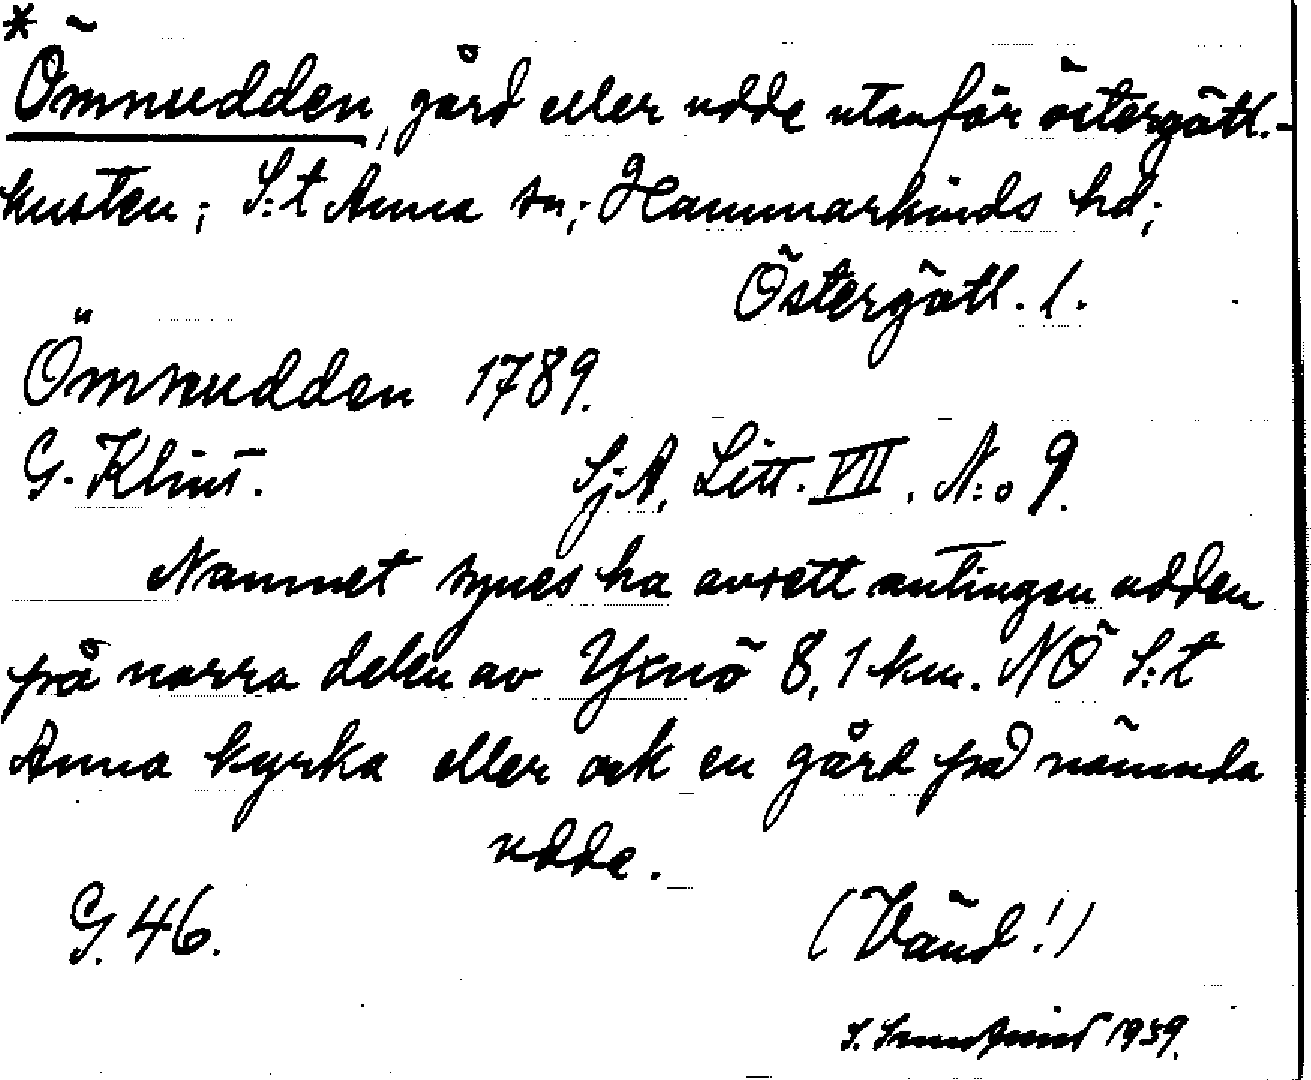 * Ömnudden, gård eller udde utanför östergötl.-
kusten; S:t Anna sn; Hammarkinds hd;
Östergötl. l.
Ömnudden 1789.
G. Klint. SjA, Litt. VII. N:o 9.
Namnet synes ha avsett antingen udden
på norra delen av Yxnö 8,1 km. NÖ S:t
Anna kyrka eller ock en gård på nämnda
udde.
G. 46. (Vänd!)
S. 1939.